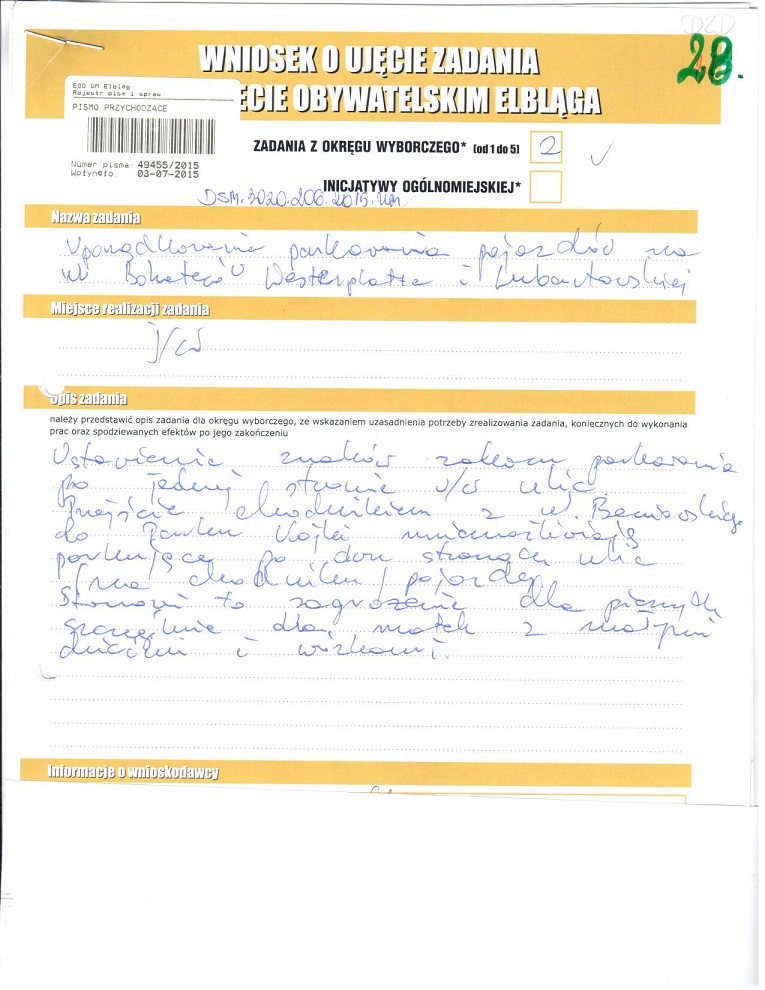 DZD
28.
WNIOSEK O UJĘCIE ZADANIA
ECIE OBYWATELSKIM ELBLĄGA
EOD UM Elbląg
Rejestr pism i spraw
PISMO PRZYCHODZĄCE
Numer pisma: 49455/2015
Wpłynęło: 03-07-2015
ZADANIA Z OKRĘGU WYBORCZEGO* (od 1 do 5) 2
INICJATYWY OGÓLNOMIEJSKIEJ*
DSM.3020.206.2015.
Nazwa zadania
Uporządkowanie parkowania pojazdów na
ul Bohaterów Westerplatte i Lubartowskiej
Miejsce realizacji zadania
j/w
Opis zadania
należy przedstawić opis zadania dla okręgu wyborczego, ze wskazaniem uzasadnienia potrzeby zrealizowania zadania, koniecznych do wykonania
prac oraz spodziewanych efektów po jego zakończeniu
Ustawienie znaków zakazu parkowania
po jednej stronie w/w ulic
Przejście chodnikiem z ul.
do Parku Kajki uniemożliwiają
parkujące po dwu stronach ulic
/na chodniku/ pojazdy.
Stanowi to zagrożenie dla pieszych
szczególnie dla matek z małymi
dziećmi i wózkami.
Informacje o wnioskodawcy